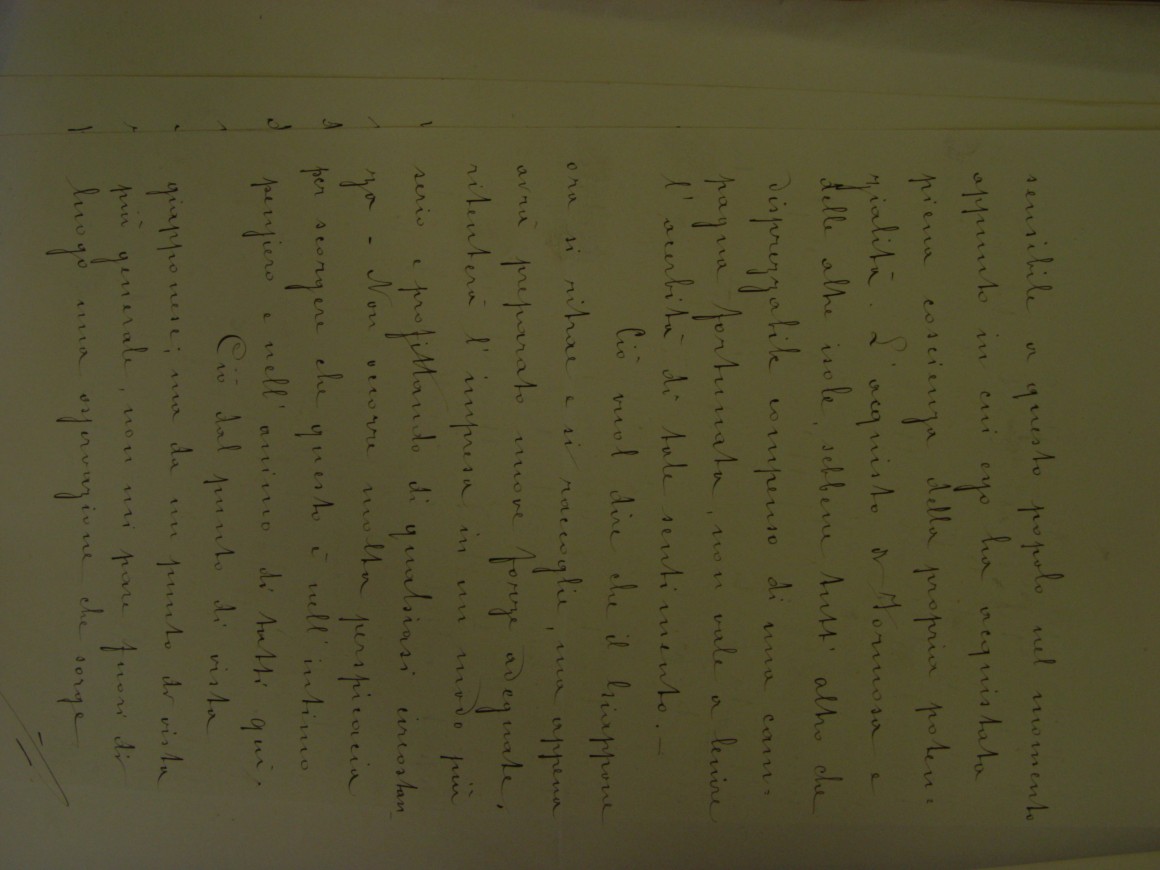 sensibile a questo popolo nel momento
appunto in cui ego ha acquistata
piena coscienza della propria poten:
zialità. L'acquisto di Formosa e
delle altre isole, sebbene tutt'altro che
disprezzabile compenso di una cam:
pagna fortunata, non vale a lenire
l'acerbità di tale sentimento. —
Ciò vuol dire che il Giappone
ora si ritrae e si raccoglie, ma appena
avrà preparato nuove forze adeguate,
ritenterà l'impresa in un modo più
serio e profittando di qualsiasi circostan
za - Non occorre molta perspicacia
per scorgere che questo è nell'intimo
pensiero e nell'animo di tutti qui.
Ciò dal punto di vista
giapponese; ma da un punto di vista
più generale, non mi pare fuori di
luogo una osservazione che sorge